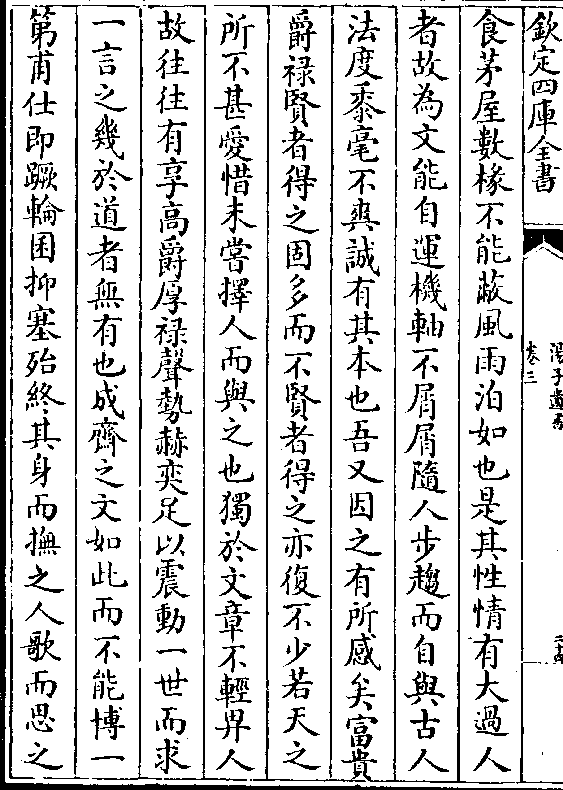 欽定四庫全書
湯子遺書
卷三
二十四
食茅屋數椽不能蔽風雨泊如也是其性情有大過人
者故為文能自運機軸不屑屑隨人步趨而自與古人
法度黍毫不爽誠有其本也吾又因之有所感矣富貴
爵禄賢者得之固多而不賢者得之亦復不少若天之
所不甚愛惜未嘗擇人而與之也獨於文章不輕畀人
故往往有享高爵厚禄聲勢赫奕足以震動一世而求
一言之幾於道者無有也成齋之文如此而不能博一
第甫仕即蹶輪囷抑塞殆終其身而撫之人歌而思之